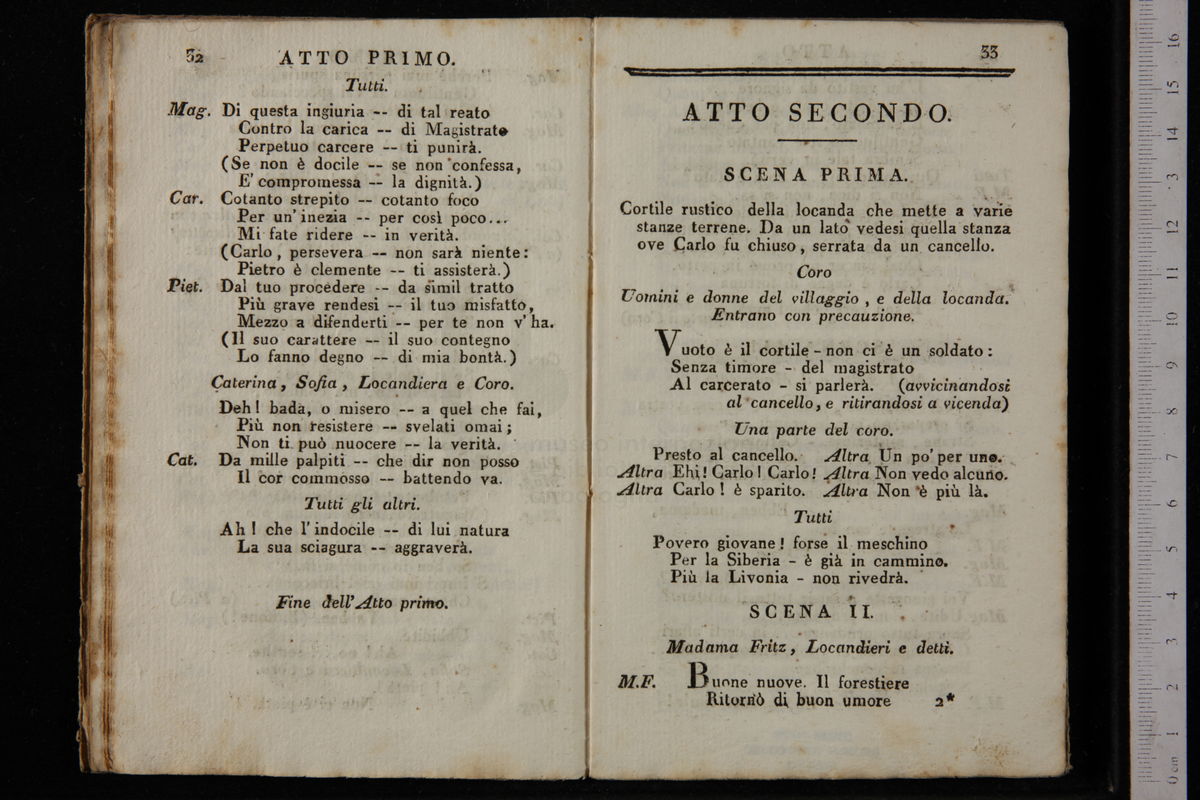 32 ATTO PRIMO.
Tutti.
Mag. Di questa ingiuria -- di tal reato
Contro la carica -- di Magistrato
Perpetuo carcere -- ti punirà.
(Se non è docile -- se non confessa,
E' compromessa -- la dignità.)
Car. Cotanto strepito -- cotanto foco
Per un' inezia -- per così poco...
Mi fate ridere -- in verità.
(Carlo, persevera -- non sarà niente:
Pietro è clemente -- ti assisterà.)
Piet. Dal tuo procedere -- da simil tratto
Più grave rendesi -- il tuo misfatto,
Mezzo a difenderti -- per te non v' ha.
(Il suo carattere -- il suo contegno
Lo fanno degno -- di mia bontà.)
Caterina, Sofia, Locandiera e Coro.
Deh! bada, o misero -- a quel che fai,
Più non resistere -- svelati omai;
Non ti può nuocere -- la verità.
Cat. Da mille palpiti -- che dir non posso
Il cor commosso -- battendo va.
Tutti gli altri.
Ah! che l' indocile -- di lui natura
La sua sciagura -- aggraverà.
Fine dell' Atto primo.
33
ATTO SECONDO.
SCENA PRIMA.
Cortile rustico della locanda che mette a varie
stanze terrene. Da un lato vedesi quella stanza
ove Carlo fu chiuso, serrata da un cancello.
Coro
Uomini e donne del villaggio, e della locanda.
Entrano con precauzione.
Vuoto è il cortile - non ci è un soldato:
Senza timore - del magistrato
Al carcerato - si parlerà. (avvicinandosi
al cancello, e ritirandosi a vicenda)
Una parte del coro.
Presto al cancello. Altra Un po' per uno.
Altra Ehi! Carlo! Carlo! Altra Non vedo alcuno.
Altra Carlo! è sparito. Altra Non è più là.
Tutti
Povero giovane! forse il meschino
Per la Siberia - è già in cammino.
Più la Livonia - non rivedrà.
SCENA II.
Madama Fritz, Locandieri e detti.
M.F. Buone nuove. Il forestiere
Ritornò di buon umore 2*
0 cm 1 2 3 4 5 6 7 8 9 10 11 12 13 14 15 16